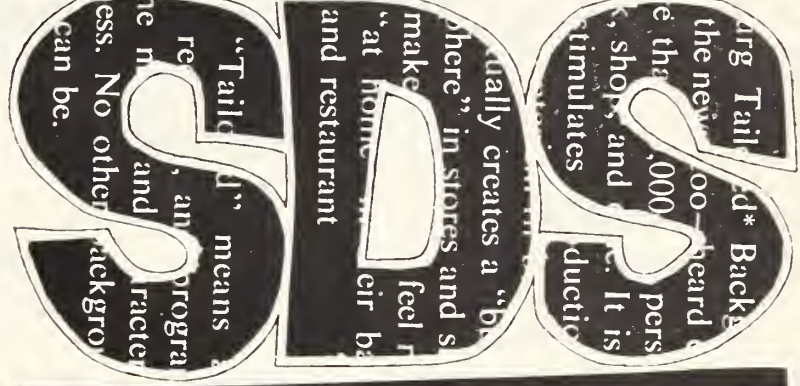 SDS
urg Tail d* Backg
the new oo—heard
e tha ,000 pers
, shop, and e. It is
stimulates ductio
ually creates a "b
phere" in stores and s
make feel r
"at home eir ba
and restaurant
"Tailo d" means
re , an progra
ne m and racter
ess. No other ackgrou
can be.